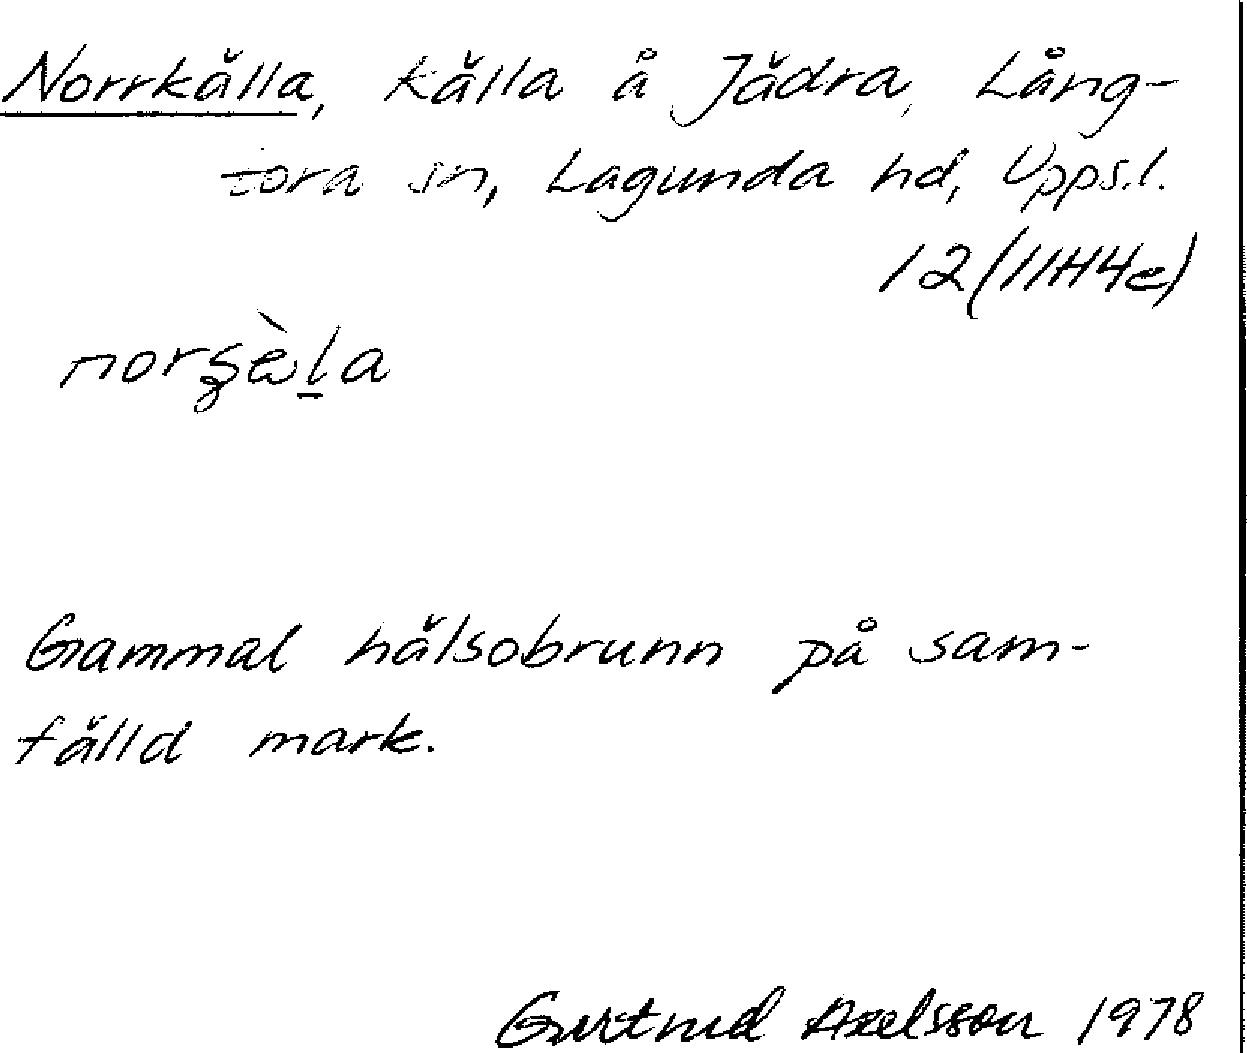 Norrkälla, källa å Jädra, Lång-
tora sn, Lagunda hd, Upps.l.
12 (11H4e)
Gammal hälsobrunn på sam-
fälld mark.
Gertrud Axelsson 1978